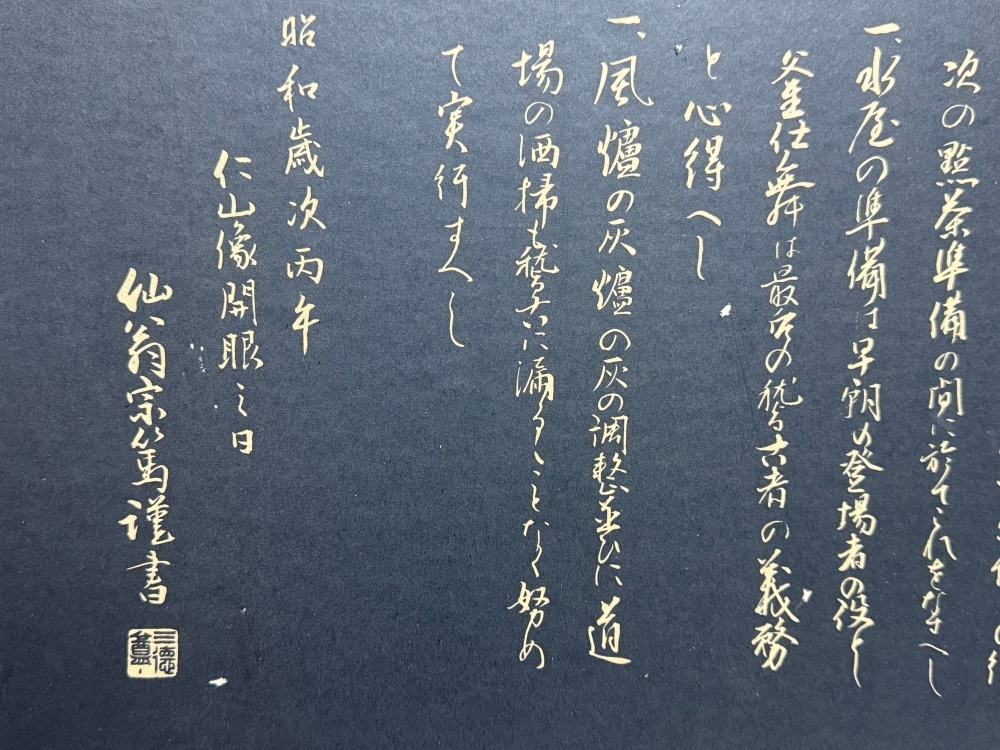 次の點茶準備の間に於てこれをなすへし
一、水屋の準備は早朝の登場者の役とし
釜仕舞は最后の稽古者の義務
と心得へし
一、風爐の灰爐の灰の調整並ひに道
場の洒掃も稽古に漏るゝことなく努め
て実行すへし
昭和歳次丙午
仁山像開眼之日
仙翁宗篤謹書